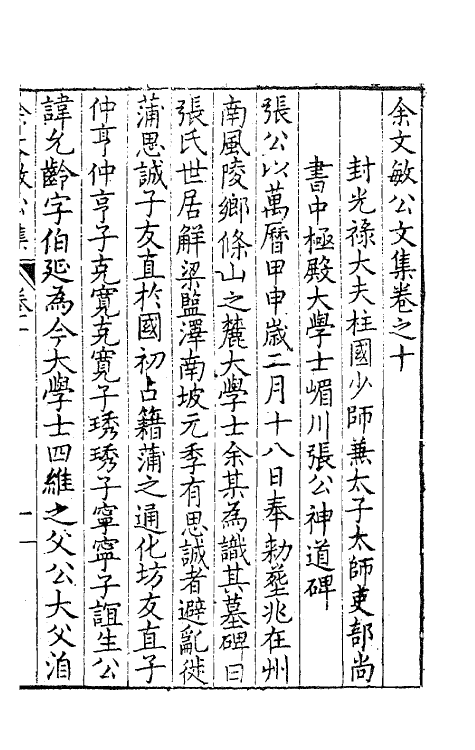 余文敏公文集卷之十
封光祿大夫柱國少師兼太子太師吏部尚
書中極殿大學士嵋川張公神道碑
張公以萬曆甲申歲二月十八日奉勑塟兆在州
南風陵鄉條山之麓大學士余某為識其墓碑曰
張氏世居解梁鹽澤南坡元季有思誠者避亂徙
蒲思誠子友直於國初占籍蒲之通化坊友直子
仲亨仲亨子克寬克寬子琇琇子寧寧子誼生公
諱允齡字伯延為今大學士四維之父公大父洎